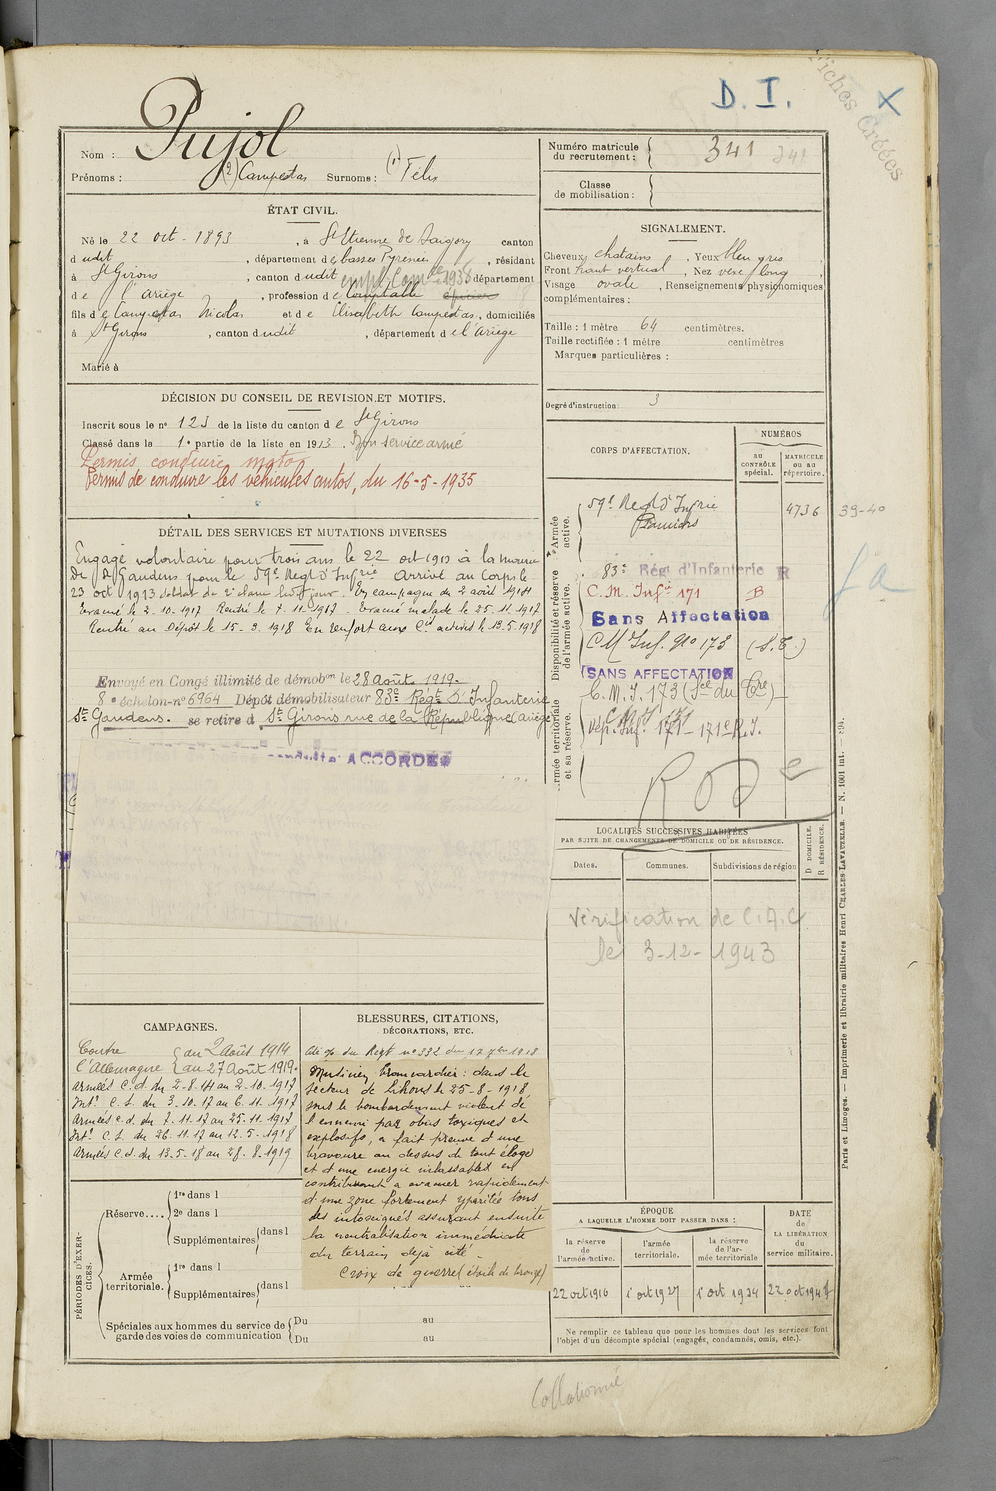 D. I. X
Fiches Créées
Nom : Pujol
Prénoms : (2) Campistas Surnoms : (1) Félix
Numéro matricule du recrutement : 341 341
Classe de mobilisation :
ÉTAT CIVIL.
Né le 22 oct - 1893, à St Etienne de Baigory canton
dudit, département des basses Pyrenees, résidant
à St Girons, canton dudit département
de l'Ariège, profession de Comptable épicier
fils de Campistas Nicolas et de Elisabeth Campistas, domiciliés
à St Girons, canton dudit, département de l'Ariège
Marié à
SIGNALEMENT.
Cheveux chatains, Yeux bleu gris
Front haut vertical, Nez vexe long
Visage ovale, Renseignements physionomiques
complémentaires :
Taille : 1 mètre 64 centimètres.
Taille rectifiée : 1 mètre centimètres
Marques particulières :
Degré d'instruction : 3
DÉCISION DU CONSEIL DE REVISION ET MOTIFS.
Inscrit sous le n° 123 de la liste du canton de St Girons
Classé dans le 1e partie de la liste en 1913. Bon service armé
Permis conduire motos
Permis de conduire les véhicules autos, du 16-5-1935
DÉTAIL DES SERVICES ET MUTATIONS DIVERSES
Engagé volontaire pour trois ans le 22 oct 1913 à la mairie
de St Gaudens pour le 59e Regt d'Infrie Arrivé au Corps le
23 oct 1913 soldat de 2e classe ledit jour. En campagne du 2 août 1914
Evacué le 2.10.1917 Rentré le 7.11.1917. Evacué malade le 25.11.1917
Rentré au Dépôt le 15-3.1918 En renfort aux Cies actives le 13.5.1918
Envoyé en Congé illimité de démobon le 28 Août 1919.
8e échelon n° 6964 Dépôt démobilisateur 83e Régt d'Infanterie
St Gaudens. se retire à St Girons rue de la République (Ariège)
ACCORDÉ
CORPS D'AFFECTATION.
NUMÉROS
AU CONTRÔLE spécial.
MATRICULE ou au répertoire.
Armée active.
59e Regt d'Infrie
Pamiers
4736
39-40
Disponibilité et réserve de l'armée active.
83e Régt d'Infanterie R
C. M. Infie 171 B
Sans Affectation
CM Inf. No 173 (S.T.)
SANS AFFECTATION
C. M. I. 173
Armée territoriale et sa réserve.
171e R.I.
LOCALITÉS SUCCESSIVES HABITÉES
PAR SUITE DE CHANGEMENTS DE DOMICILE OU DE RÉSIDENCE.
Dates. Communes. Subdivisions de région
D DOMICILE.
R RÉSIDENCE.
Vérification de C.A.C
le 3-12-1943
CAMPAGNES.
Contre l'Allemagne { du 2 Août 1914
au 27 Août 1919.
Armées C.d. du 2-8-14 au 2-10-1917
Intr C.S. du 3-10-17 au 6.11.1917
Armées c.d. du 7.11.17 au 25.11.1917
Intr C.S. du 26.11.17 au 12.5.1918
Armées C.d. du 13.5.18 au 27.8.1919
BLESSURES, CITATIONS,
DÉCORATIONS, ETC.
Cité % du Regt n° 332 du 17 7bre 1918
bombardier : dans le
secteur de Lihons le 25-8-1918
sous le bombardement violent de
l'ennemi par obus toxiques et
explosifs, a fait preuve d'une
bravoure au dessus de tout éloge
et d'une energie inlassable en
contribuant a evacuer rapidement
d'une zone fortement ypéritée tous
les intoxiqués assurant ensuite
la neutralisation immédiate
du terrain déjà cité.
Croix de guerre (étoile de bronze)
PÉRIODES D'EXERCICES.
Réserve....
1re dans l
2e dans l
Supplémentaires dans l
Armée territoriale.
1re dans l
Supplémentaires dans l
Spéciales aux hommes du service de garde des voies de communication
Du au
Du au
ÉPOQUE
A LAQUELLE L'HOMME DOIT PASSER DANS :
la réserve de l'armée active.
l'armée territoriale.
la réserve de l'armée territoriale
DATE de LA LIBÉRATION du service militaire.
22 oct 1916
1 oct 1927
1 oct 1934
Ne remplir ce tableau que pour les hommes dont les services font
l'objet d'un décompte spécial (engagés, condamnés, omis, etc.).
Paris et Limoges. — Imprimerie et librairie militaires Henri CHARLES-LAVAUZELLE. — N. 1001 int. — 894.
Collationné